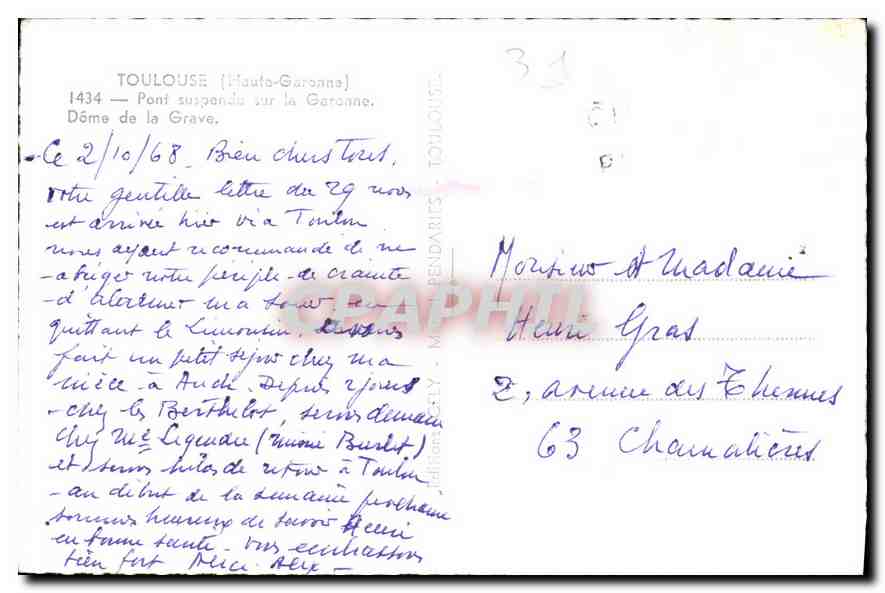 TOULOUSE (Haute-Garonne)
1434 — Pont suspendu sur la Garonne.
Dôme de la Grave.
31
Ce 2/10/68. Bien chers tous,
votre gentille lettre du 29 nous
est arrivée hier via Toulon
nous ayant recommandé de ne
abréger notre périple de crainte
d' ma soeur, en
quittant le Limousin, avons
fait un petit séjour chez ma
nièce à Auch. Depuis 2 jours
chez les Berthelot, serons demain
chez Me Legendre (Mimi )
et serons de retour à Toulon
au début de la semaine prochaine
sommes heureux de savoir Henri
en bonne santé. vous embrassons
bien fort Alice. Alex
Editions - TOULOUSE
CPAPHIL
Monsieur et Madame
Henri Gras
2, avenue des Thermes
63 Chamalières